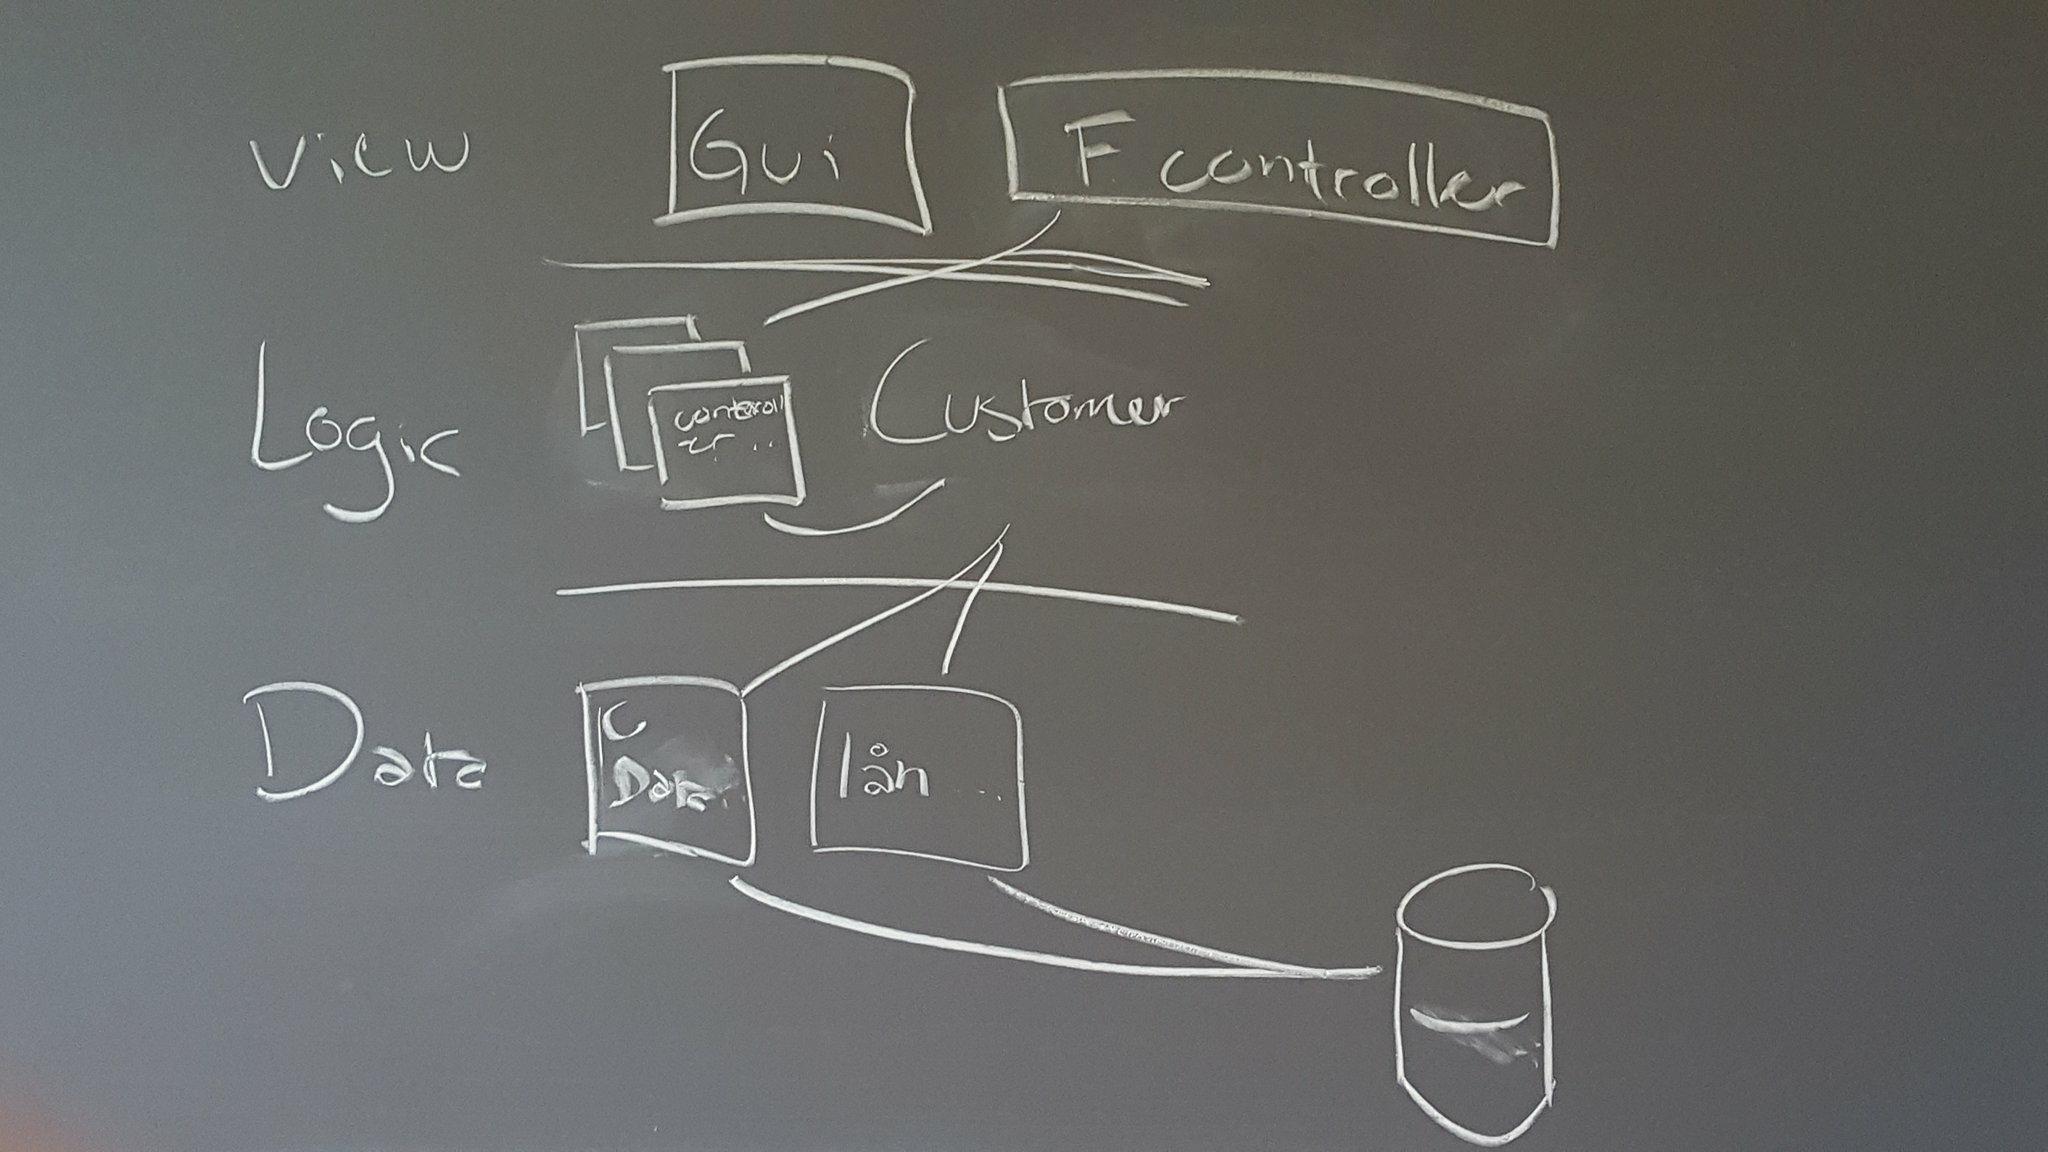 view
Gui
F controller
Logic
controll
er ...
Customer
Data
C
Data..
lån ...